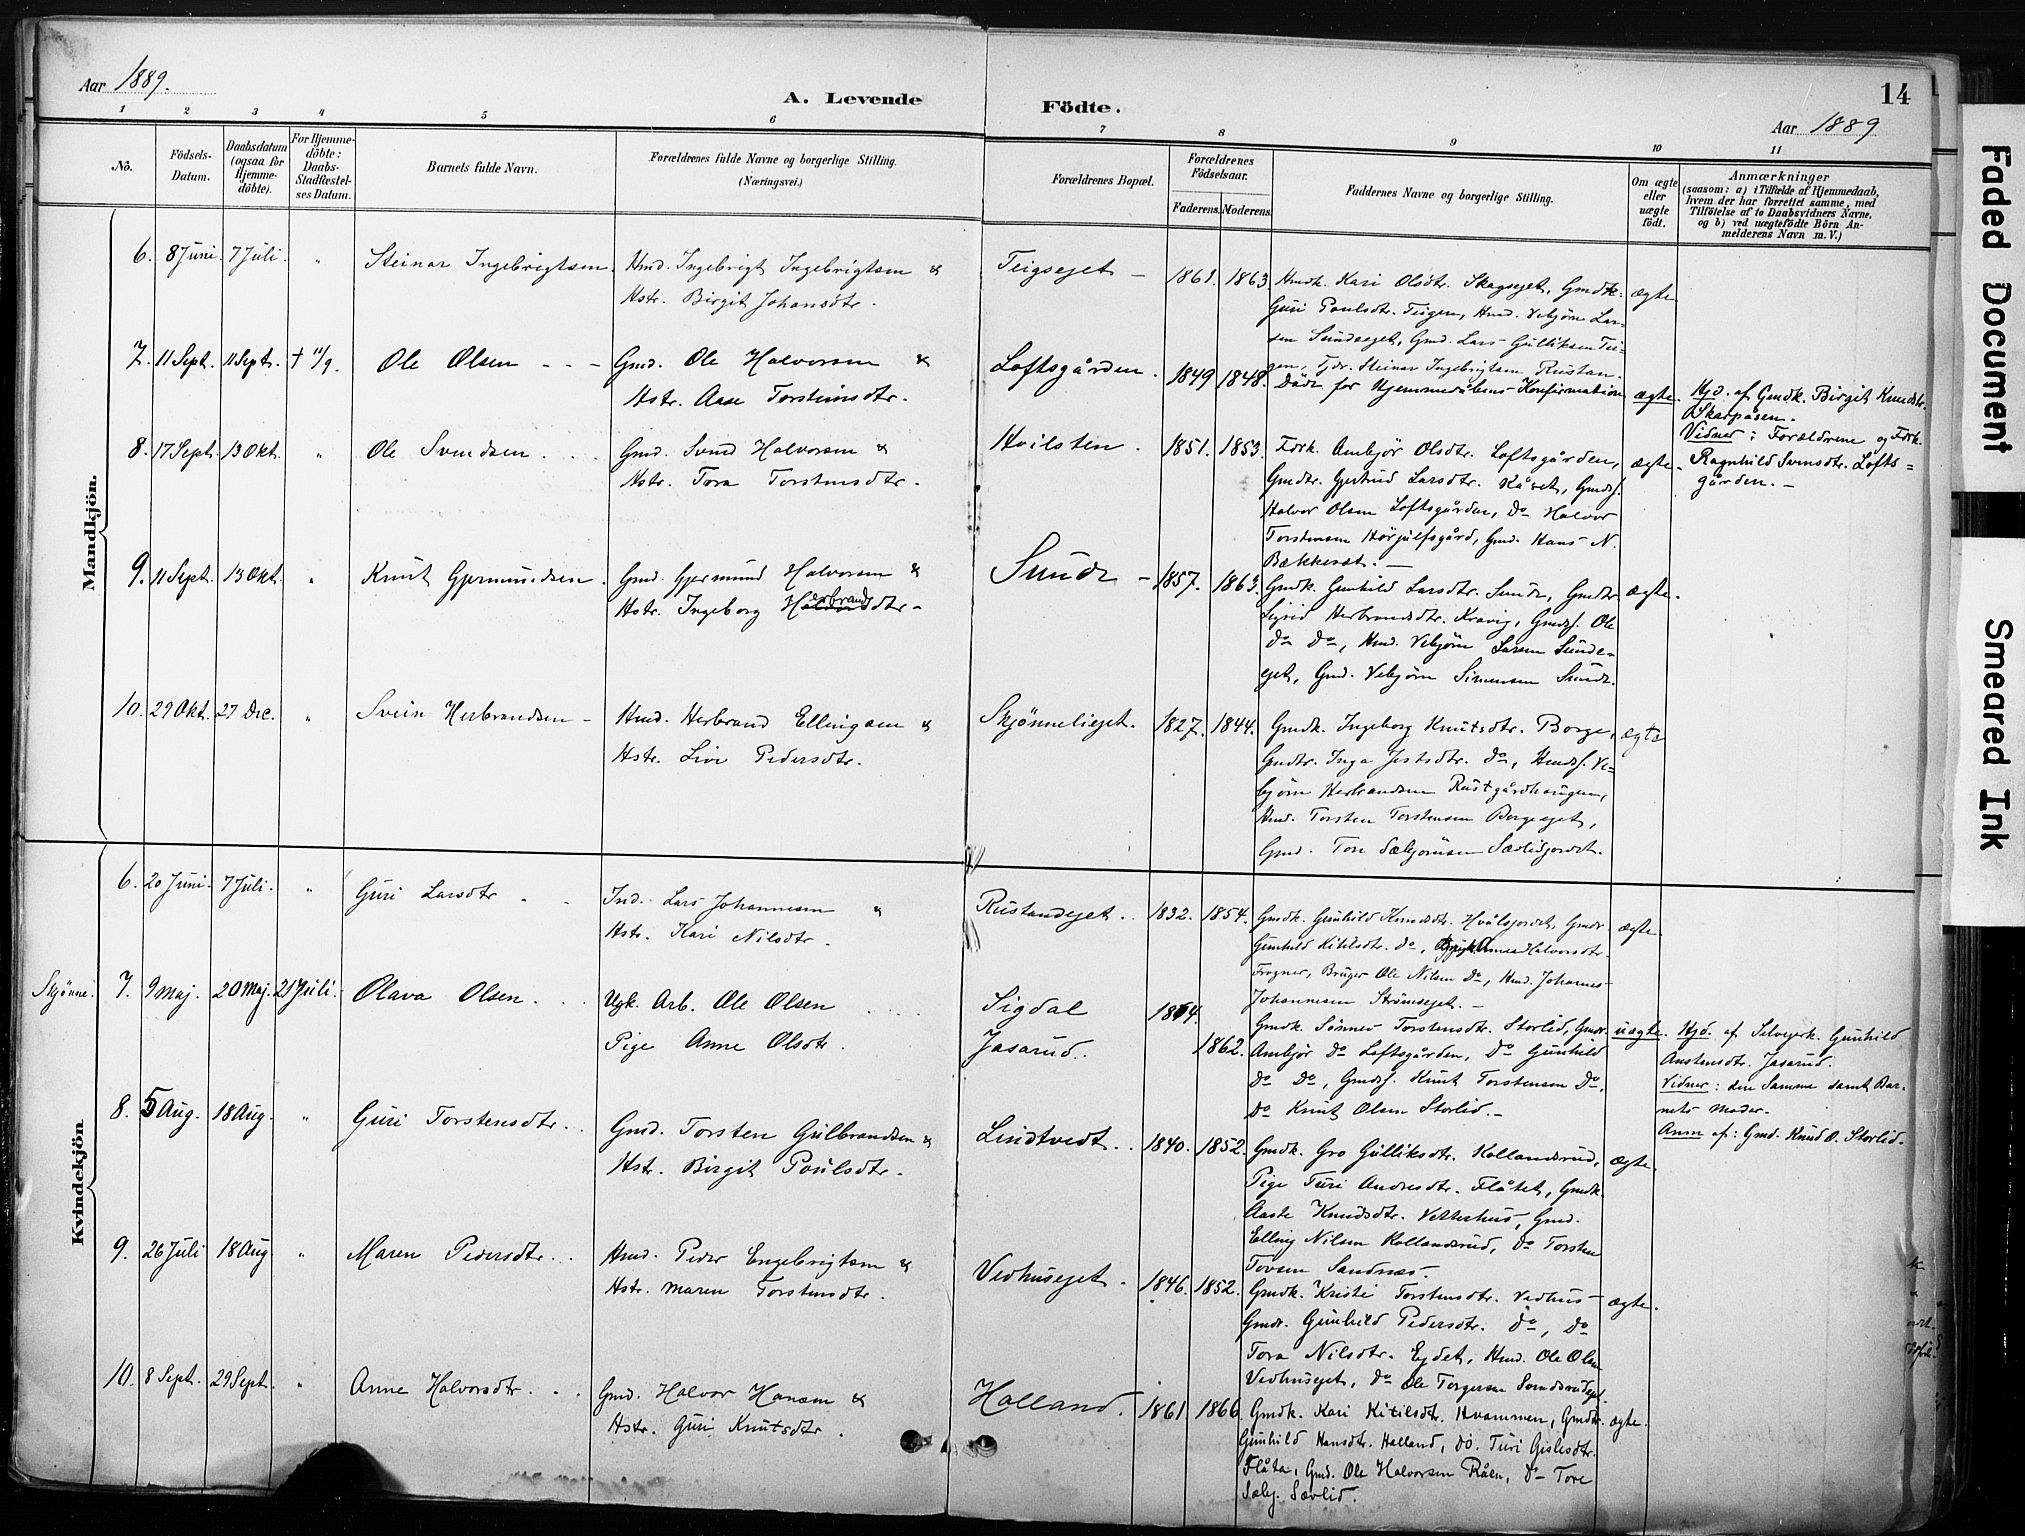 Aar 1889.
A. Levende
Födte.
14
Aar 1889
1 2 3 4 5 6 7 8 9 10 11
No.
Födsels-
Datum.
Daabsdatum
(ogsaa for
Hjemme-
döbte).
For Hjemme-
döbte:
Daabs-
Stadfæstel-
ses Datum.
Barnets fulde Navn.
Forældrenes fulde Navne og borgerlige Stilling.
(Næringsvei.)
Forældrenes Bopæl.
Forældrenes
Födselsaar.
Faderens. Moderens.
Faddernes Navne og borgerlige Stilling.
Om ægte
eller
uægte
födt.
Anmærkninger
(saasom: a) i Tilfælde af Hjemmedaab,
hvem der har forrettet samme, med
Tilföielse af to Daabsvidners Navne,
og b) ved uægtefödte Börn An-
melderens Navn m. V.)
Mandkjön.
6. 8 Juni. 7 Juli. " Steinar Ingebrigtsen. Hmd. Ingebrigt Ingebrigtsen &
Hstr. Birgit Johansdtr.
Teigseget – 1861. 1863
Hmdk. Kari Olsdtr. Skagseget, Gmdk.
Guri Paulsdtr. Teigen, Hmd. Vebjörn Lar-
sen Sundeeget, Gmd. Lars Gulliksen Tei-
gen, Tjdr. Steinar Ingebrigtsen Rustan.
ægte
7. 11 Sept. 11 Sept. † 11/9. Ole Olsen - - - Gmd. Ole Halvorsen &
Hstr. Aase Torsteinsdtr.
Loftsgården. 1849 1848.
Döde for Hjemmedåbens Konfirmation
ægte.
Hjd. af Gmdk. Birgit Knudsdtr.
Skarpåsen.
Vidner: Forældrene og Fdrk.
Ragnhild Svensdtr. Lofts-
gården. –
8. 17 Sept. 13 Okt. " Ole Svendsen. . . Gmd. Svend Halvorsen &
Hstr. Tora Torstensdtr.
Hvilsten. 1851. 1853.
Fdrk. Ambjör Olsdtr. Loftsgården,
Gmdtr. Gjertrud Larsdtr. Kåset, Gmdsf.
Halvor Olsen Loftsgården, Do Halvor
Torstensen Hörjulfsgård, Gmd. Hans N.
Bækkeset. –
ægte.
9. 11 Sept. 13 Okt. " Knut Gjermundsen. Gmd. Gjermund Halvorsen &
Hstr. Ingeborg Herbrandsdtr –
Sunde – 1857. 1863.
Gmdk. Gunhild Larsdtr. Sunde, Gmdtr.
Sigrid Herbrandsdtr. Kravig, Gmdsf. Ole
Do Do, Hmd. Vebjörn Larsen Sunde-
eget, Gmd. Vebjörn Simensen Sunde.
ægte.
10. 29 Okt. 27 Dec. " Svein Herbrandsen – Hmd. Herbrand Ellingsen &
Hstr. Live Pedersdtr.
Skjönnelieget. 1827. 1844.
Gmdk. Ingeborg Knutsdtr. Borge,
Gmdtr. Inga Jestsdtr. Do, Hmdsf. Ve-
björn Herbrandsen Rustgårdhaugen,
Hmd. Torsten Torstensen Borgeeget,
Gmd. Tore Sæbjörnsen Sævlidjordet.
ægte
Kvindekjön.
6. 20 Juni. 7 Juli. " Guri Larsdtr . . Ind. Lars Johannesen &
Hstr. Kari Nilsdtr.
Rustandeget. 1832. 1854.
Gmdk. Gunhild Knudsdtr. Hvålsjordet, Gmdtr
Gunhild Kitilsdtr. Do, Anne Halvorsdtr.
Frogner, Bruger Ole Nilsen Do, Hmd. Johannes
Johannesen Strömseget. –
ægte.
Skjönne. 7. 9 Maj. 20 Maj. 21 Juli. Olava Olsen. . . Ugk. Arb. Ole Olsen . . . .
Pige Anne Olsdtr.
Sigdal 1864.
Jasarud. 1862.
Gmdk. Sönnev Torstensdtr. Storlid, Gmdtr.
Ambjör Do Loftsgården, Do Gunhild
Do Do, Gmdsf. Knut Torstensen Do,
Do Knut Olsen Storlid. –
uægte.
Hjd. af Selvejerk. Gunhild
Austensdtr. Jasarud.
Vidner: den Samme samt Bar-
nets Moder.
Anm af: Gmd. Knud O. Storlid.
8. 5 Aug. 18 Aug. " Guri Torstensdtr. . Gmd. Torsten Gulbrandsen &
Hstr. Birgit Poulsdtr.
Lindtvedt. . 1840. 1852.
Gmdk. Gro Gulliksdtr. Kollandsrud,
Pige Turi Andresdtr. Flåtet, Gmdk.
Aaste Knudsdtr. Vetterhus, Gmd.
Elling Nilsen Kollandsrud, Do Torsten
Tovsen Sandnæs.
ægte.
9. 26 Juli 18 Aug " Maren Pedersdtr. . . Hmd. Peder Engebrigtsen &
Hstr. Maren Torstensdtr.
Vedhuseget. 1846. 1852.
Gmdk. Kristi Torstensdtr. Vedhus –
Gmdtr. Gunhild Pedersdtr. Do, Do
Tora Nilsdtr. Ejdet, Hmd. Ole Olsen
Vedhuseget, Do Ole Torgersen
ægte.
10. 8 Sept. 29 Sept. " Anne Halvorsdtr. . . Gmd. Halvor Hansen &
Hstr. Guri Knutsdtr.
Holland. 1861. 1866.
Gmdk. Kari Kitilsdtr. Hvammen, Gmdtr.
Gunhild Hansdtr. Holland, Do. Turi Gislesdtr.
Flåta, Gmd. Ole Halvorsen Råen, Do Tore
Sæbj. Sævlid.
ægte.
Faded Document
Smeared Ink